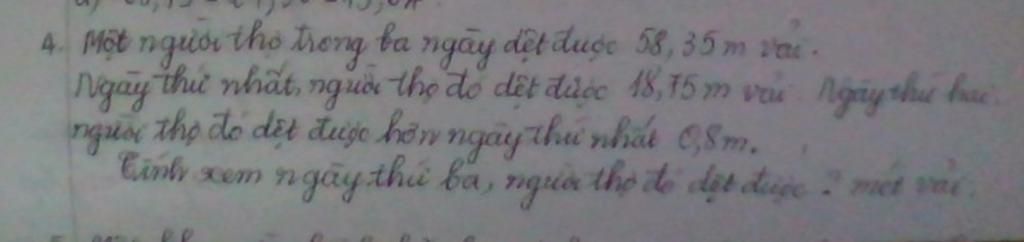 4. Một người thợ trong ba ngày dệt được 58,35m vải.
Ngày thứ nhất, người thợ đó dệt được 18,75m vải. Ngày thứ hai,
người thợ đó dệt được hơn ngày thứ nhất 0,8m.
Tính xem ngày thứ ba, người thợ đó dệt được ? mét vải.